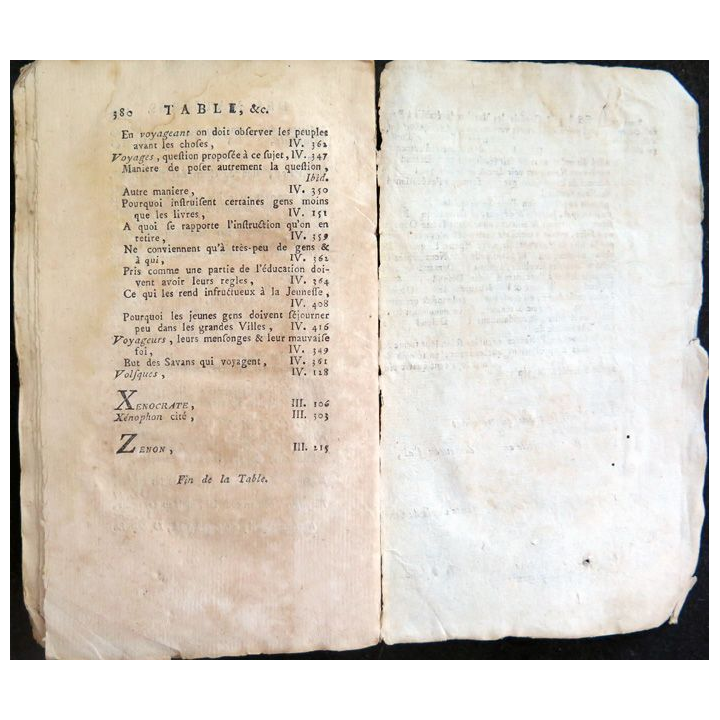 380 TABLE, &c.
En voyageant on doit obſerver les peuples
avant les choſes, IV. 362
Voyages, queſtion propoſée à ce ſujet, IV. 347
Maniere de poſer autrement la queſtion,
Ibid.
Autre maniere, IV. 350
Pourquoi inſtruiſent certaines gens moins
que les livres, IV. 151
A quoi ſe rapporte l'inſtruction qu'on en
retire, IV. 359
Ne conviennent qu'à très-peu de gens &
à qui, IV. 362
Pris comme une partie de l'éducation doi-
vent avoir leurs regles, IV. 364
Ce qui les rend infructueux à la Jeuneſſe,
IV. 408
Pourquoi les jeunes gens doivent ſéjourner
peu dans les grandes Villes, IV. 416
Voyageurs, leurs menſonges & leur mauvaiſe
foi, IV. 349
But des Savans qui voyagent, IV. 361
Volſques, IV. 128
XENOCRATE, III. 106
Xénophon cité, III. 303
ZENON, III. 215
Fin de la Table.